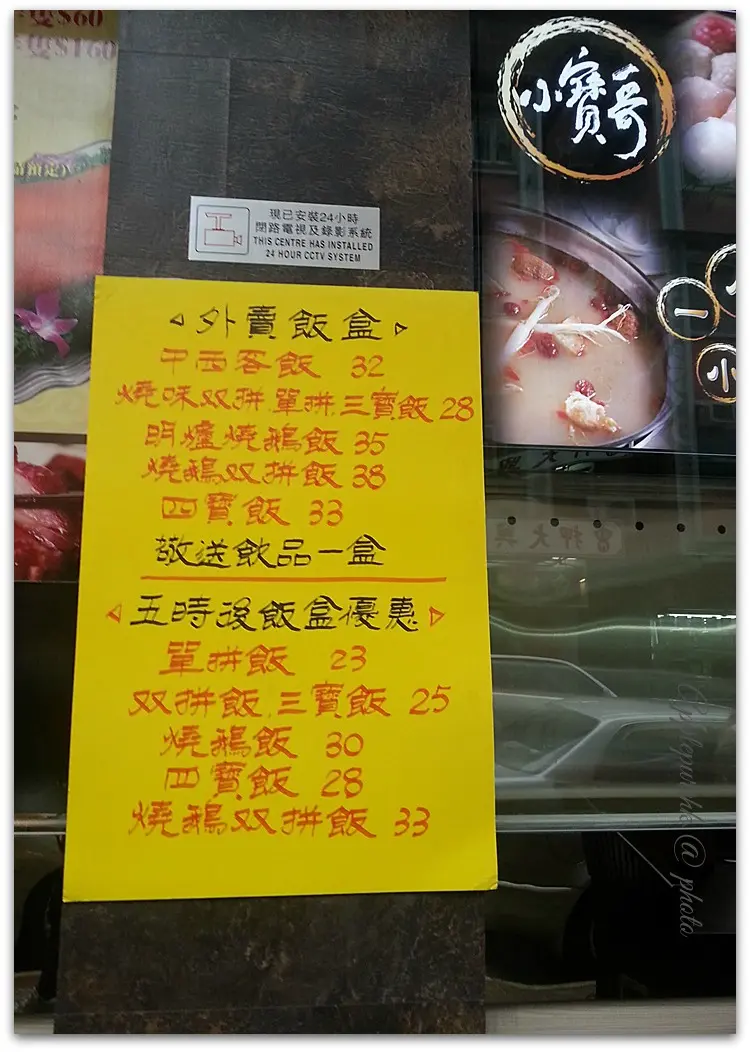 隻$60
隻$160
小寶哥
現已安裝24小時
閉路電視及錄影系統
THIS CENTRE HAS INSTALLED
24 HOUR CCTV SYSTEM
外賣飯盒
中西客飯 32
燒味双拼,單拼,三寶飯 28
明爐燒鵝飯 35
燒鵝双拼飯 38
四寶飯 33
敬送飲品一盒
五時後飯盒優惠
單拼飯 23
双拼飯,三寶飯 25
燒鵝飯 30
四寶飯 28
燒鵝双拼飯 33
一
小
@ photo